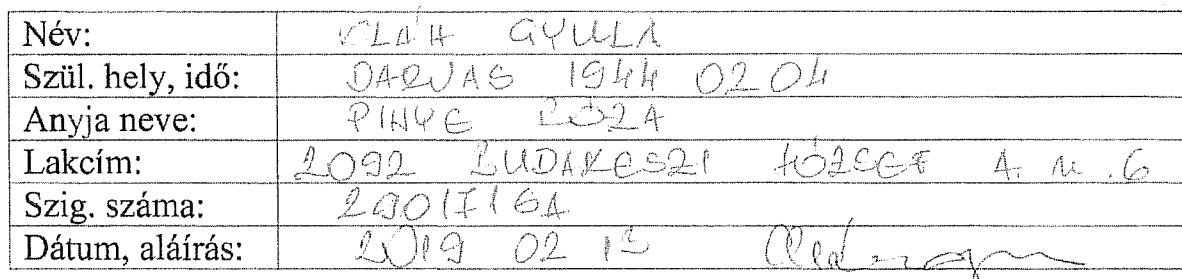 Név: OLÁH GYULA
Szül. hely, idő: DARVAS 1944 02 04
Anyja neve: PINYE RÓZA
Lakcím: 2092 BUDAKESZI JÓZSEF A. u. 6
Szig. száma:
Dátum, aláírás: 2019 02 13